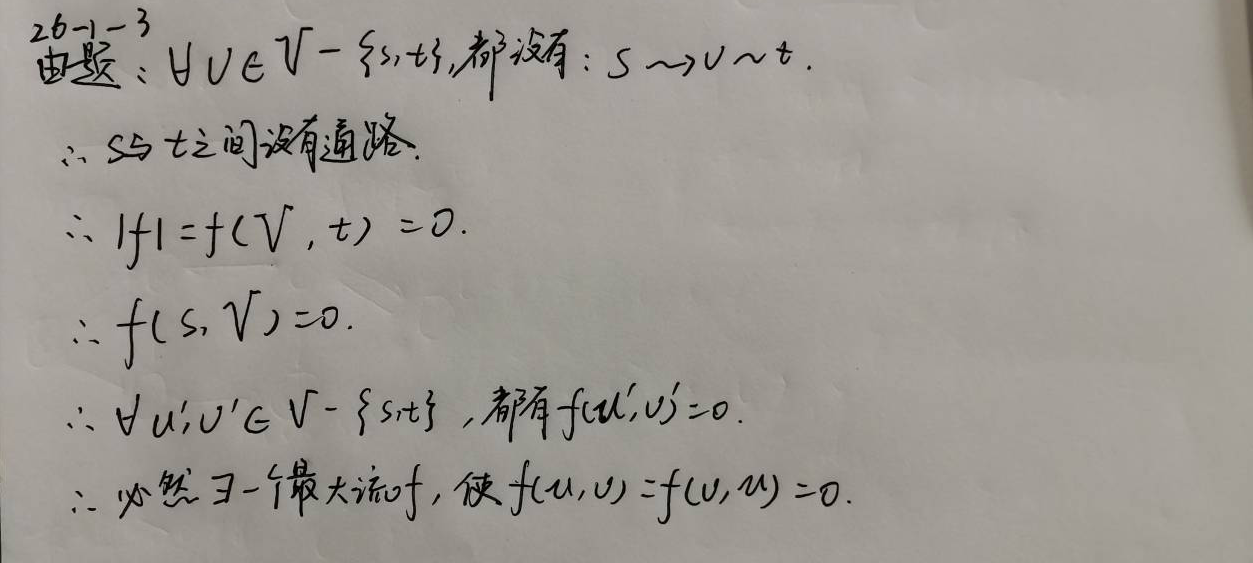 26-1-3
由题:∀υ∈V-{s,t},都没有:s⇝υ~t.
∴ s与t之间没有通路.
∴ |f|=f(V,t)=0.
∴ f(s,V)=0.
∴ ∀u',υ'∈V-{s,t},都有f(u',υ')=0.
∴ 必然∃一个最大流f,使f(u,υ)=f(υ,u)=0.